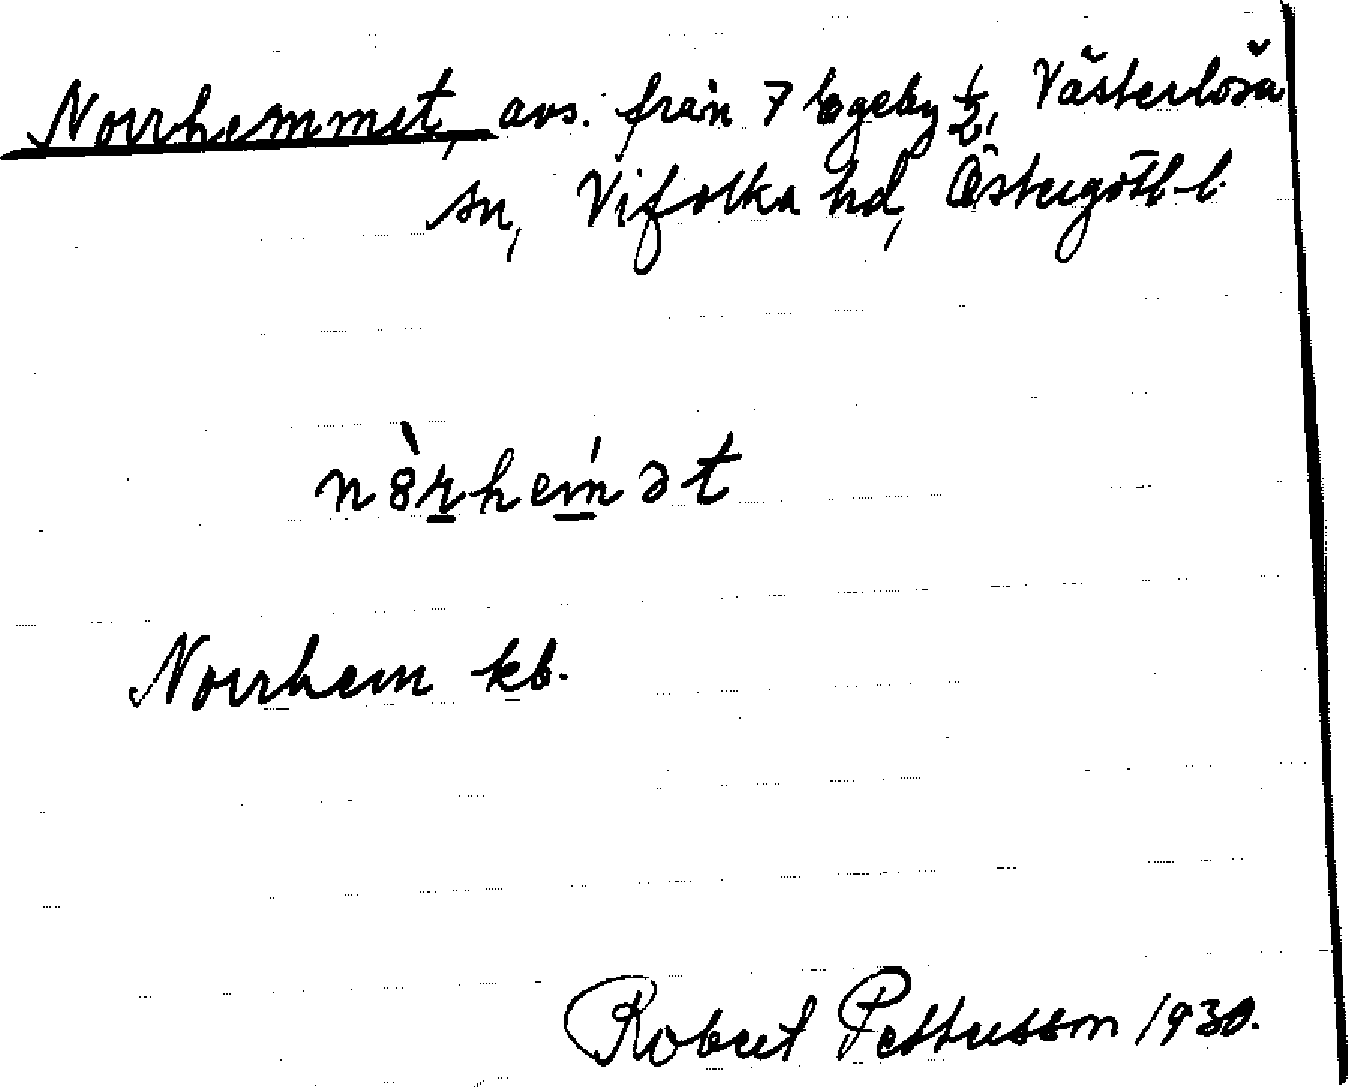 Norrhemmet, avs. från 7 Egeby 1/2, Västerlösa
sn, Vifolka hd, Östergötl. l.
nòrhem̀ət
Norrhem kb.
Robert Pettersson 1930.